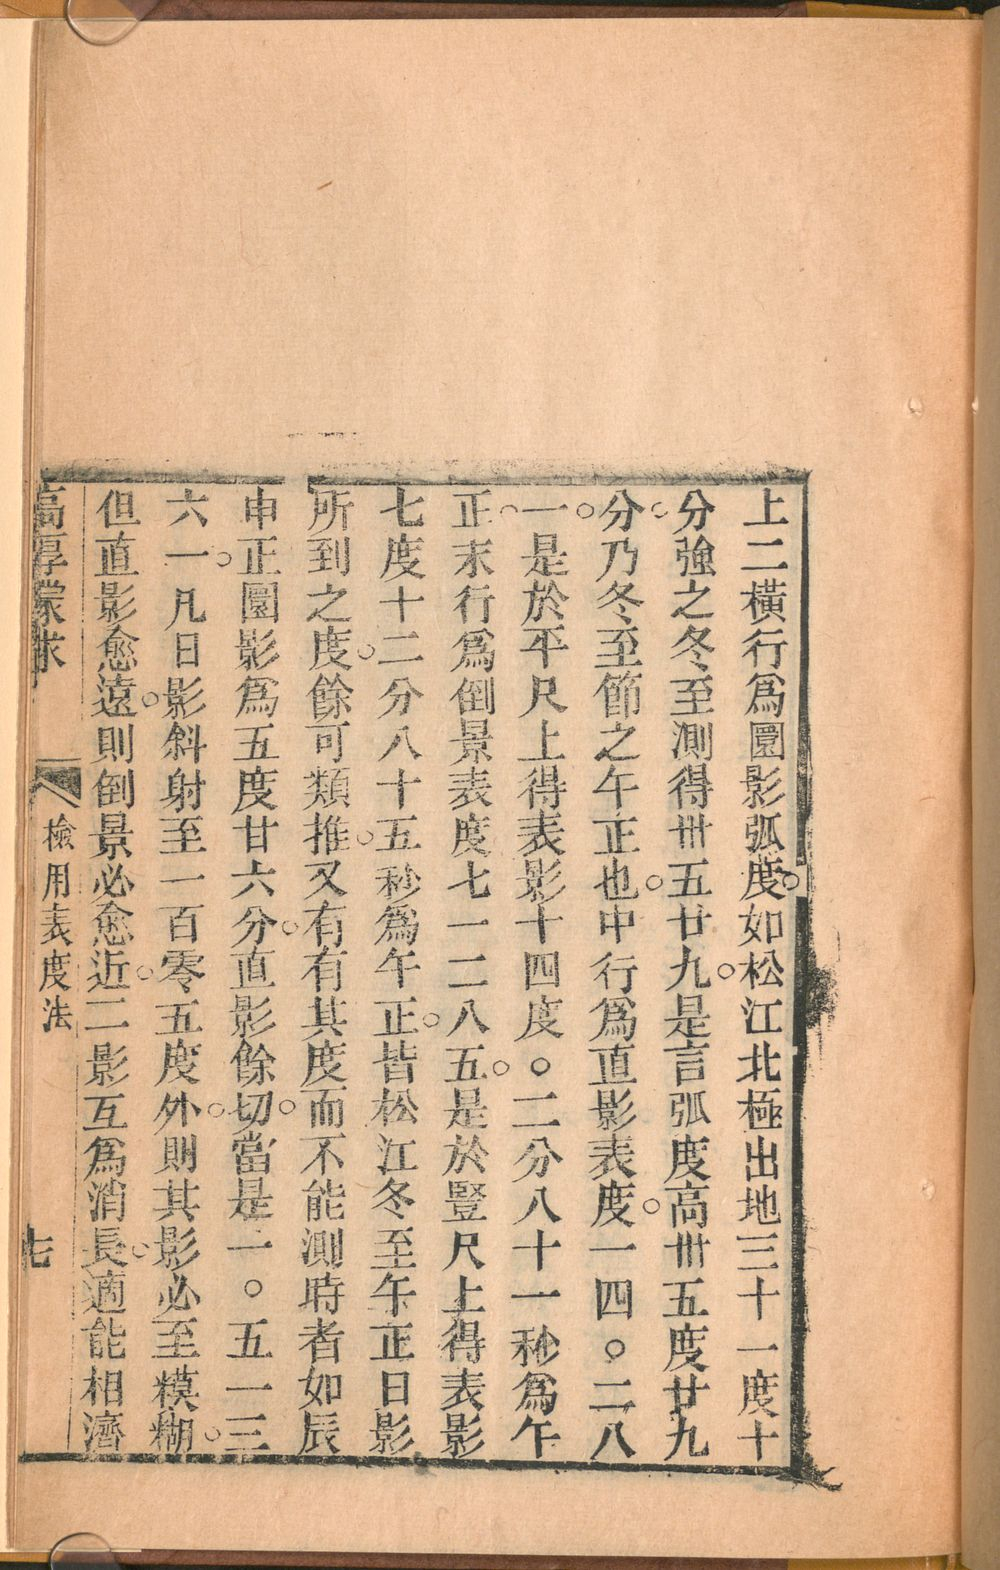 上二橫行爲圜影弧度如松江北極出地三十一度十
分強之冬至測得卅五廿九是言弧度高卅五度廿九
分乃冬至節之午正也中行爲直影表度一四〇二八
一是於平尺上得表影十四度〇二分八十一秒爲午
正末行爲倒景表度七一二八五是於豎尺上得表影
七度十二分八十五秒爲午正皆松江冬至午正日影
所到之度餘可類推又有有其度而不能測時者如辰
申正圜影爲五度廿六分直影餘切當是一〇五一三
六一凡日影斜射至一百零五度外則其影必至糢糊
但直影愈遠則倒景必愈近二影互爲消長適能相濟
高厚蒙求 檢用表度法 七